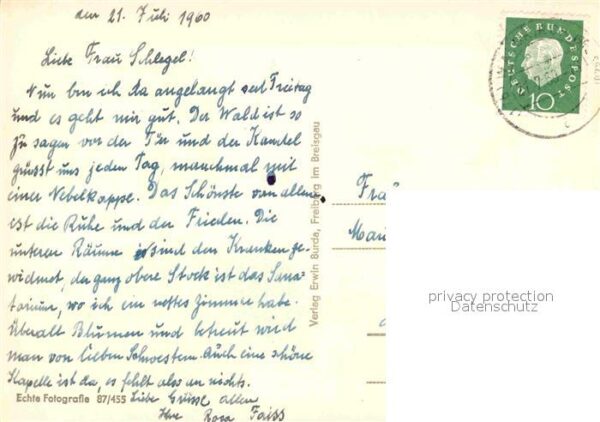 den 21. Juli 1960
Liebe Frau Schlegel!
Nun bin ich da angelangt seit Freitag
und es geht mir gut. Der Wald ist so
zu sagen vor der Tür und der Kandel
grüsst uns jeden Tag, manchmal mit
einer Nebelkappe. Das Schönste von allem
ist die Ruhe und der Frieden. Die
unteren Räume sind den Kranken ge-
widmet, der ganz obere Stock ist das Sana-
torium, wo ich ein nettes Zimmer habe.
Überall Blumen und betreut wird
man von lieben Schwestern. Auch eine schöne
Kapelle ist da, es fehlt also an nichts.
Liebe Grüsse allen
Ihre Rosa Faiss
Echte Fotografie 87/455
Verlag Erwin Burda, Freiburg im Breisgau
DEUTSCHE BUNDESPOST
10
Fra
Mari
privacy protection
Datenschutz